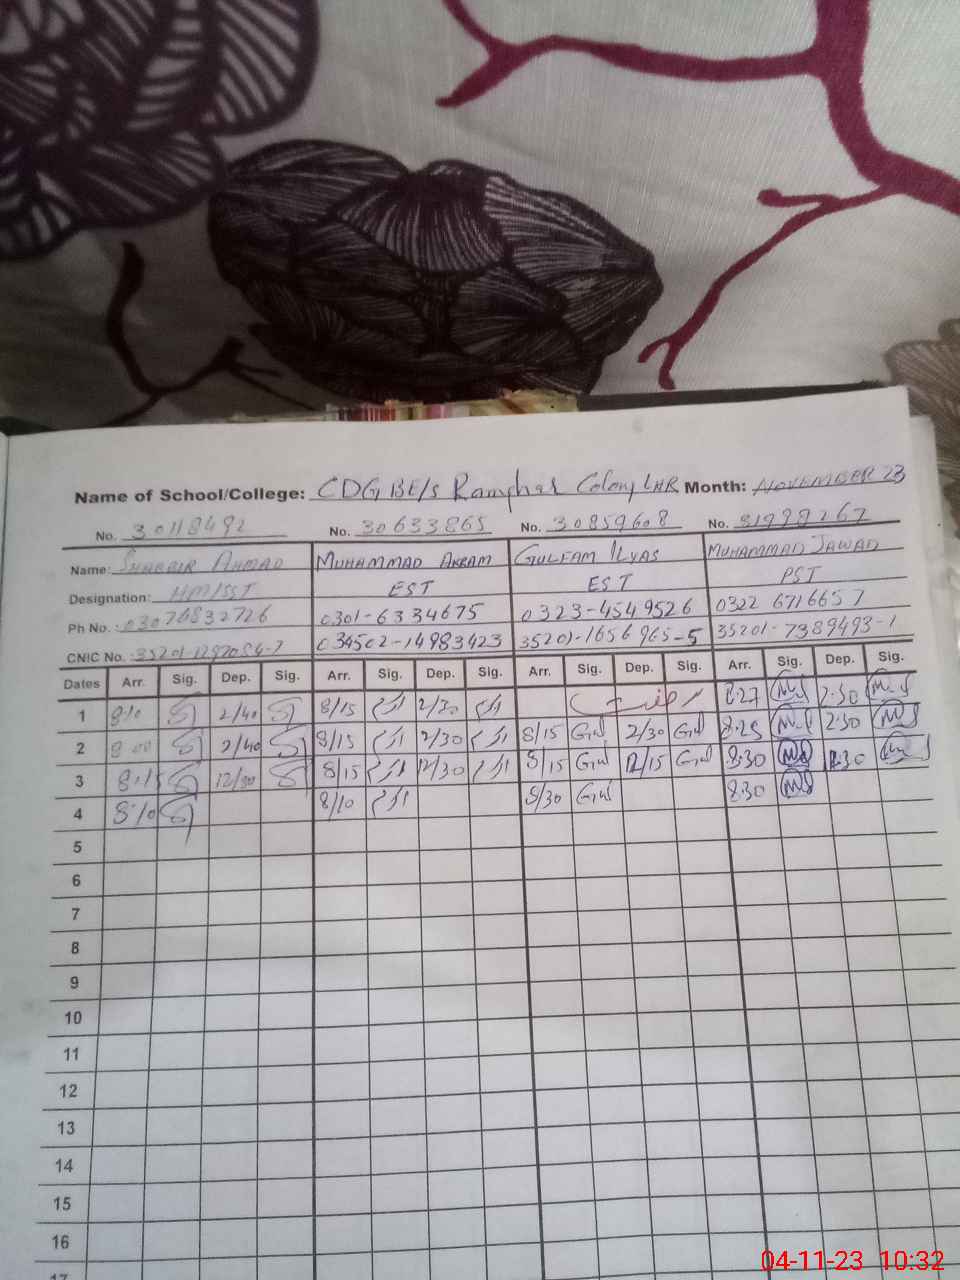 Name of School/College: CDG BE/s Ramghar Colony LHR Month: NOVEMBER 23
No. 30118492 No. 30633865 No. 30859608 No. 31998267
Name: SHABBIR AHMAD MUHAMMAD AKRAM GULFAM ILYAS MUHAMMAD JAWAD
Designation: HM/SST EST EST PST
Ph No.: 03076832726 0301-6334675 0323-4549526 0322 6716657
CNIC No. 034502-14983423 35201-1656965-5 35201-7389493-1
Dates Arr. Sig. Dep. Sig. Arr. Sig. Dep. Sig. Arr. Sig. Dep. Sig. Arr. Sig. Dep. Sig.
1 8/10 2/40 8/15 2/30 8:27 2:30
2 2/40 8/15 2/30 8/15 Gul 2/30 Gul 8:25 2:30
3 8:15 12/30 8/15 12/30 8/15 Gul 12/15 Gul 8:30 12:30
4 8/10 8/10 8/30 Gul 8:30
5
6
7
8
9
10
11
12
13
14
15
16
17
04-11-23 10:32